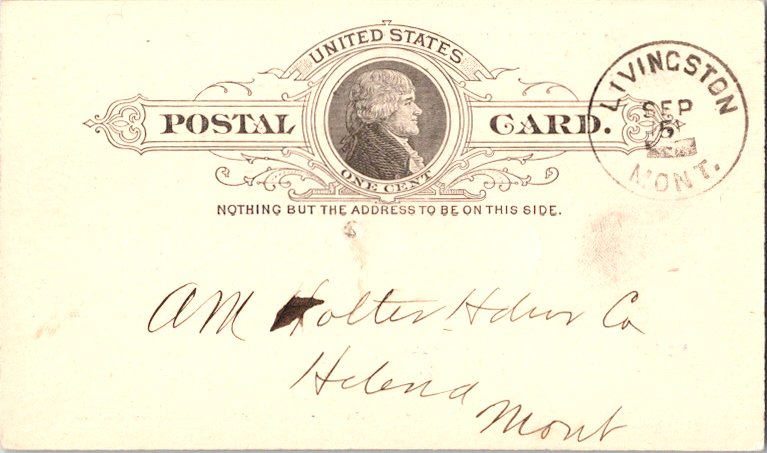 UNITED STATES
POSTAL CARD.
ONE CENT
NOTHING BUT THE ADDRESS TO BE ON THIS SIDE.
LIVINGSTON
SEP
5
MONT.
A M Holter Hdwr Co
Helena
Mont